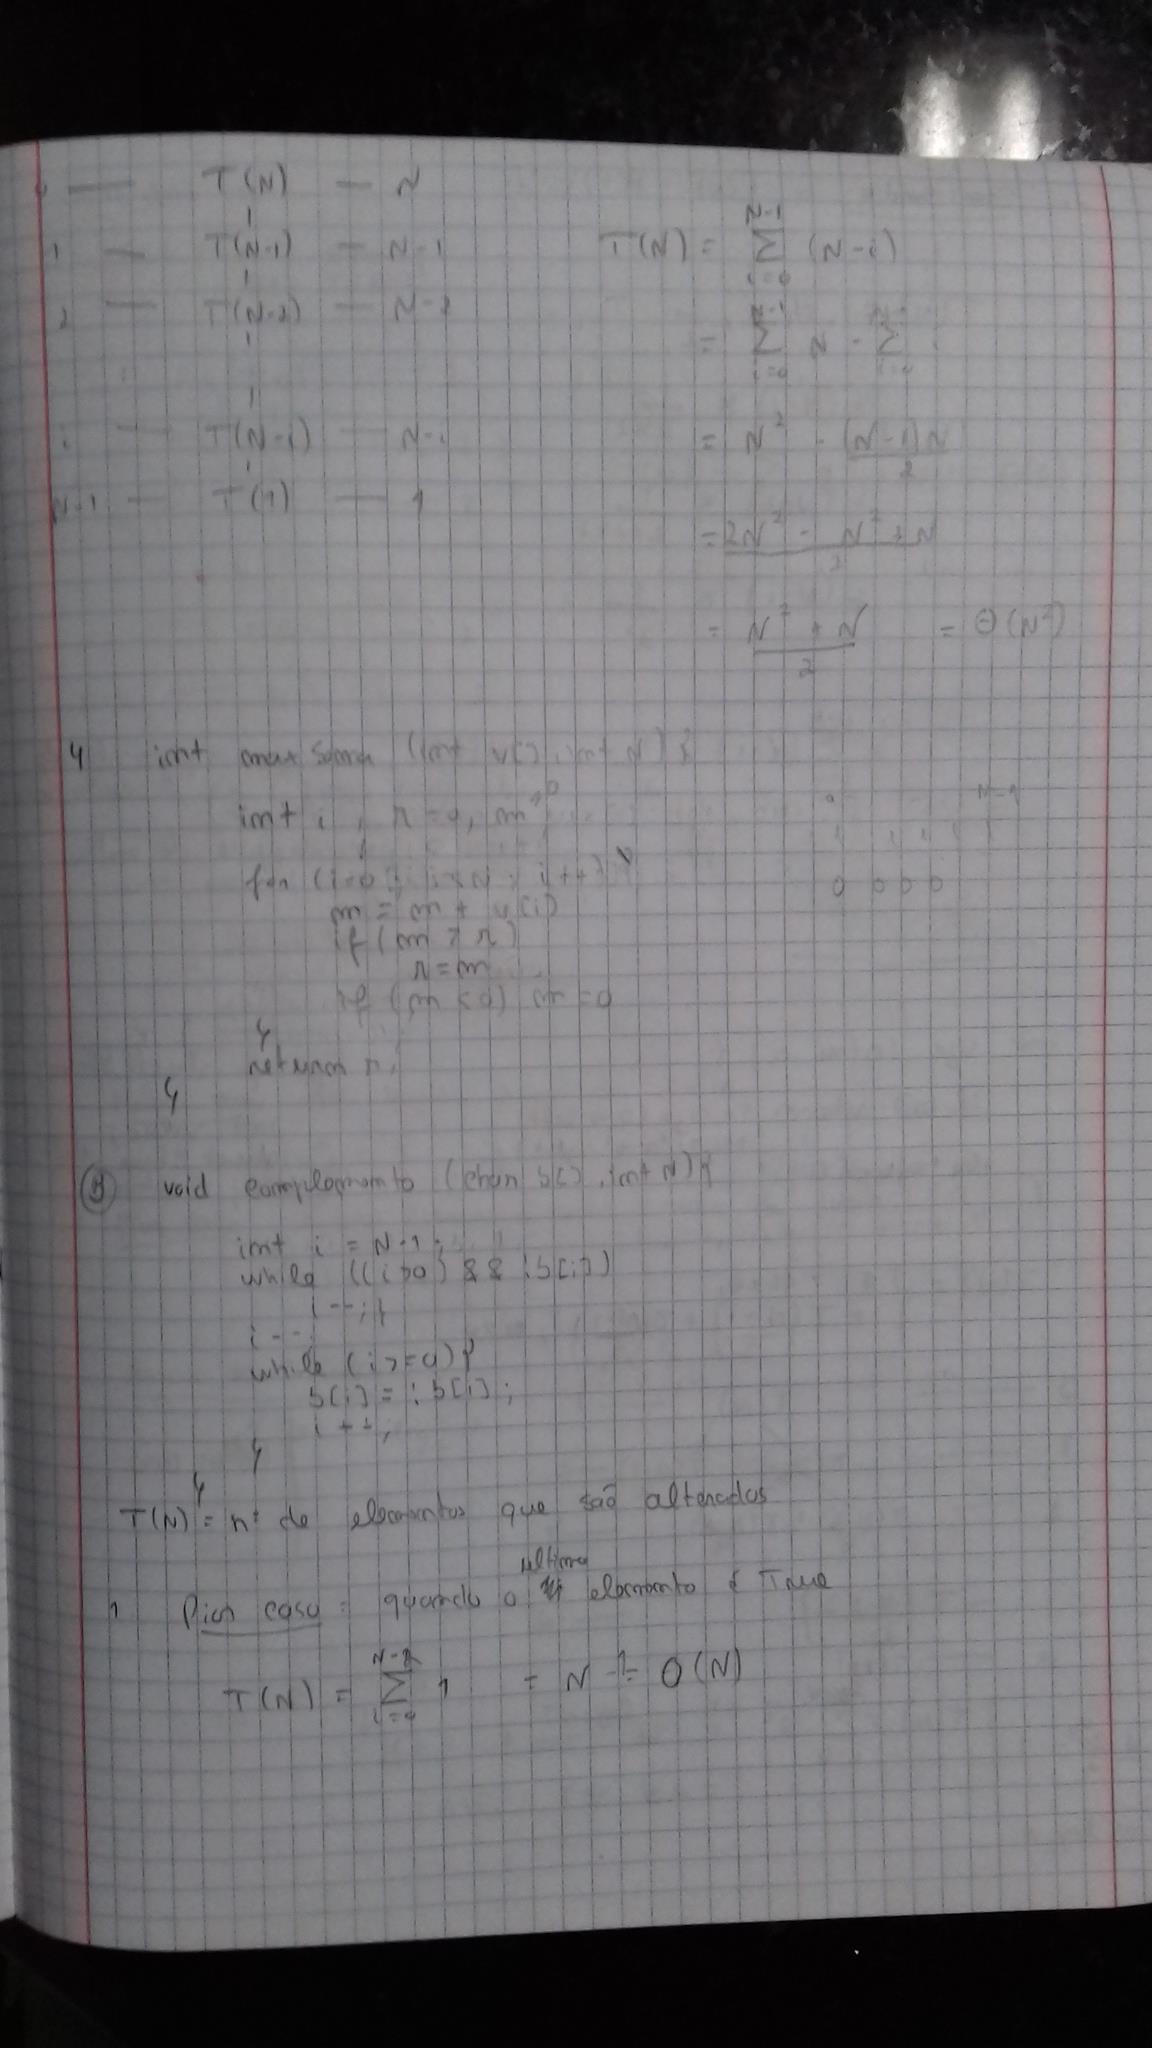 0 — T(N) — N
1 — T(N-1) — N-1
2 — T(N-2) — N-2
i — T(N-i) — N-i
N-1 — T(1) — 1
T(N) = N-1 Σ i=0 (N-i)
= N-1 Σ i=0 N - Σ
= N² - (N-1)N / 2
= 2N² - N² + N / 2
= N² + N / 2 = Θ(N²)
4 int maxSoma (int v[], int N) {
int i, r=0, m=0;
for (i=0; i<N; i++) {
m = m + v[i]
if (m > r)
r=m
if (m<0) m=0
}
return r;
}
0 N-1
0 0 0 0
5 void complemento (char b[], int N) {
int i = N-1;
while ((i>0) && !b[i])
i--;
i--;
while (i>=0) {
b[i] = !b[i];
i++;
}
}
T(N) = nº de elementos que são alterados
1 Pior caso: quando o último elemento é True
T(N) = N-2 Σ i=0 1 = N-1 = O(N)